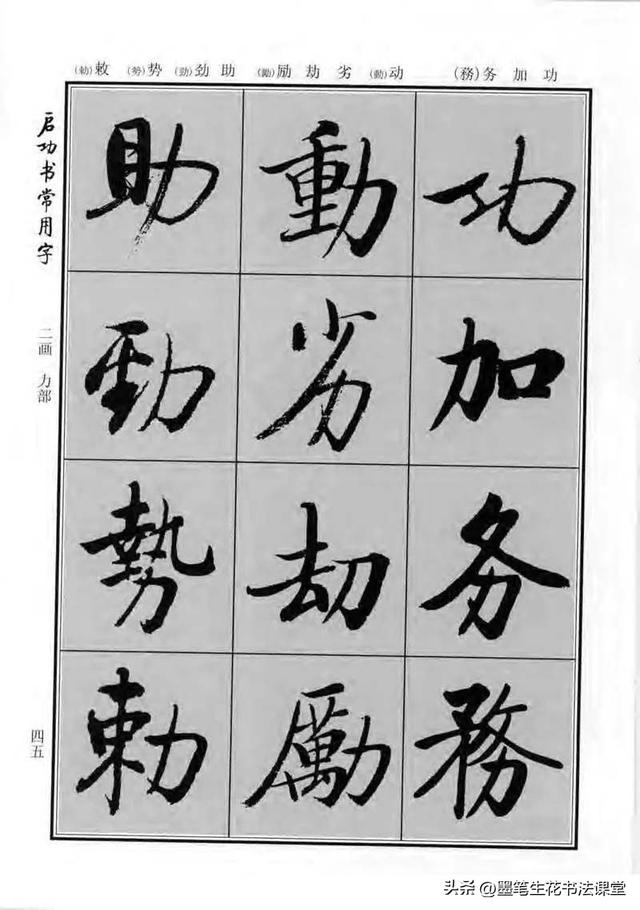 功加务(務) 动(動)劣劫励(勵) 助劲(勁)势(勢)敕(勅)
功加务務
動劣劫勵
助勁勢勅
启功书常用字
二画 力部
四五
头条 @墨笔生花书法课堂